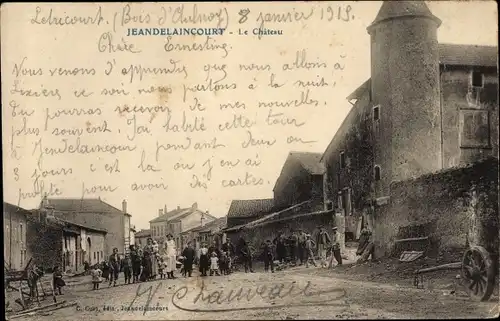 Letricourt (Bois d'Aulnoy) 8 janvier 1915
JEANDELAINCOURT - Le Château
Chère Ernestine
Nous venons d'apprendre que nous allons à
ce soir nous partons à la nuit,
tu pourras recevoir de mes nouvelles
plus souvent. J'ai habité cette tour
à Jendelaincourt pendant deux ou
jours c'est la où j'en ai
pour avoir des cartes
H Chauveau
édit., Jeandelaincourt